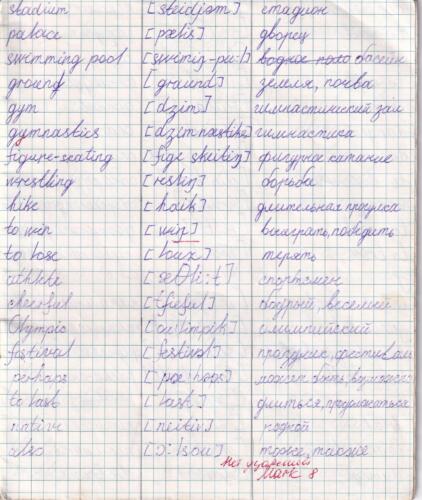 stadium [steidjəm] стадион
palace [pælis] дворец
swimming pool [swimiŋ-pu:l] бассейн
ground [graund] земля, почва
gym [dzim] гимнастический зал
gymnastics [dzimnæstiks] гимнастика
figure-seating [figə skeitiŋ] фигурное катание
wrestling [restiŋ] борьба
hike [haik] длительная прогулка
to win [win] выиграть, победить
to lose [louz] терять
athlete [æθli:t] спортсмен
cheerful [tʃieful] бодрый, веселый
Olympic [ou'limpik] олимпийский
festival [festival] праздник, фестиваль
perhaps [pə'hæps] может быть, возможно
to last [lask] длиться, продолжаться
native [neitiv] родной
also [ɔ:lsou] тоже, также
Нет ударений
Mark 8